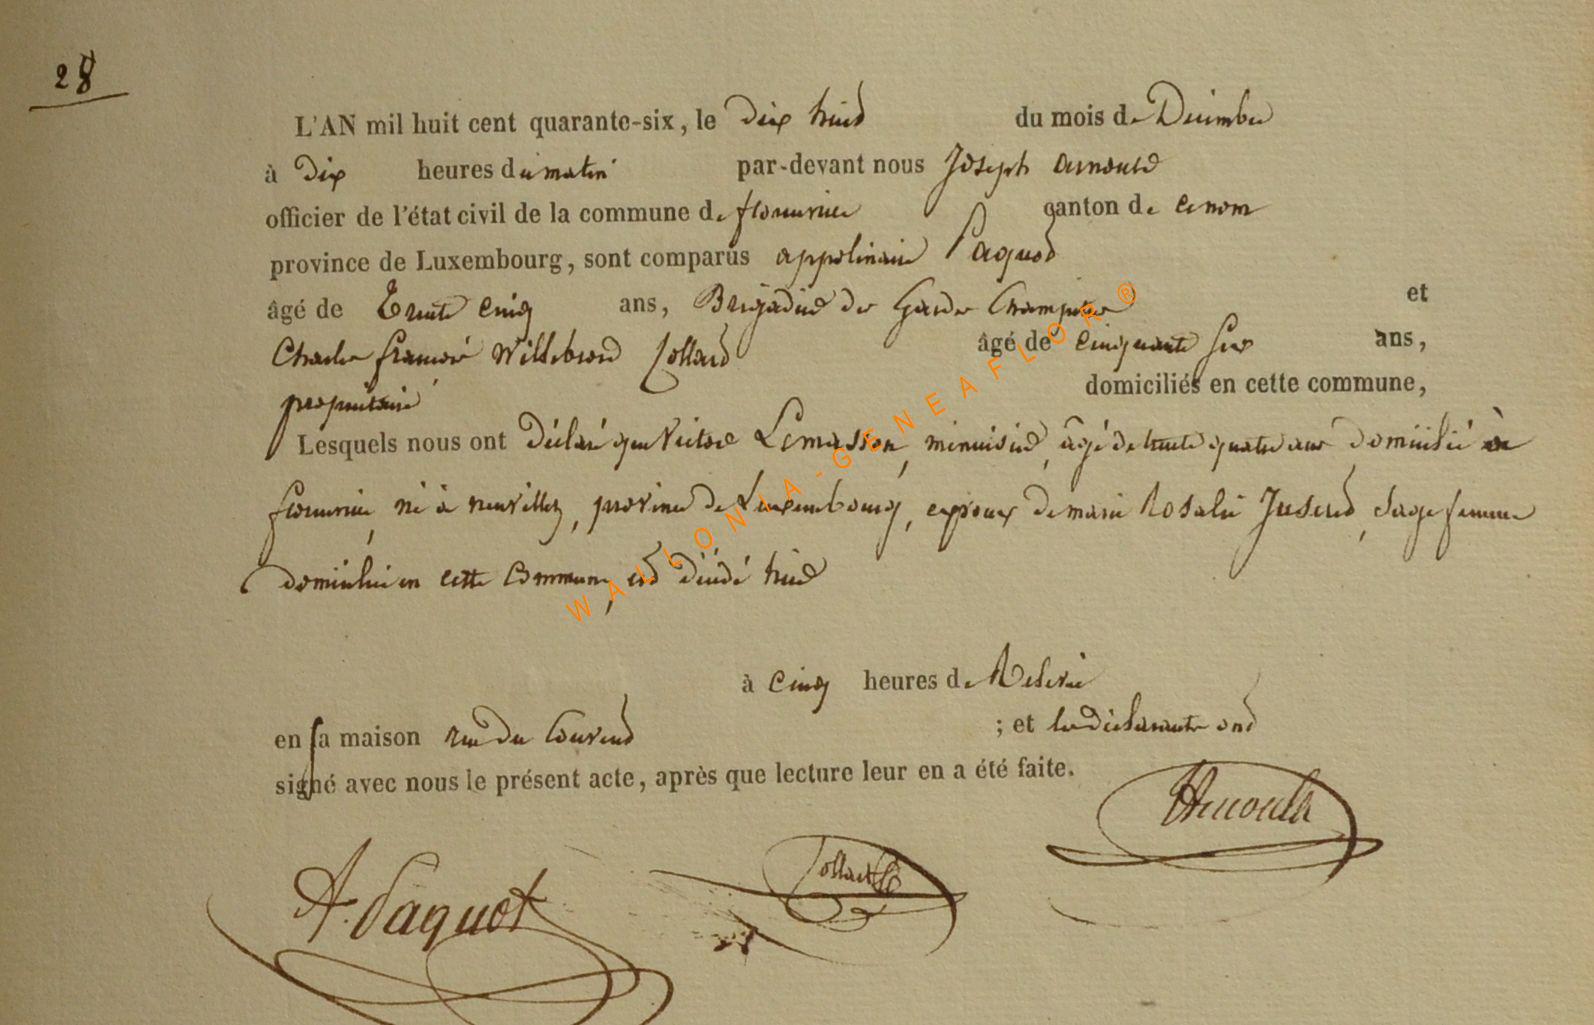 28
L'AN mil huit cent quarante-six, le dix huit du mois de Décembre
à dix heures du matin par-devant nous Joseph arnould
officier de l'état civil de la commune de florenville canton de ce nom
province de Luxembourg, sont comparus appolinaire Paquot
âgé de trente cinq ans, Brigadier des Gardes Champetres et
Charles françois Willebrord Collard âgé de cinquante six ans,
propriétaire domiciliés en cette commune,
Lesquels nous ont déclaré que Victor Lemasson, menuisier, âgé de trente quatre ans domicilié à
florenville, né à neuvillers, province de Luxembourg, epoux de marie Rosalie Juseret, sage femme
domiciliée en cette Commune, est décédé hier
à cinq heures de Relevée
en sa maison rue du Couvent ; et les déclarants ont
signé avec nous le présent acte, après que lecture leur en a été faite.
Arnould
A. Paquot Collard
WALLONIA-GENEAFLOR®